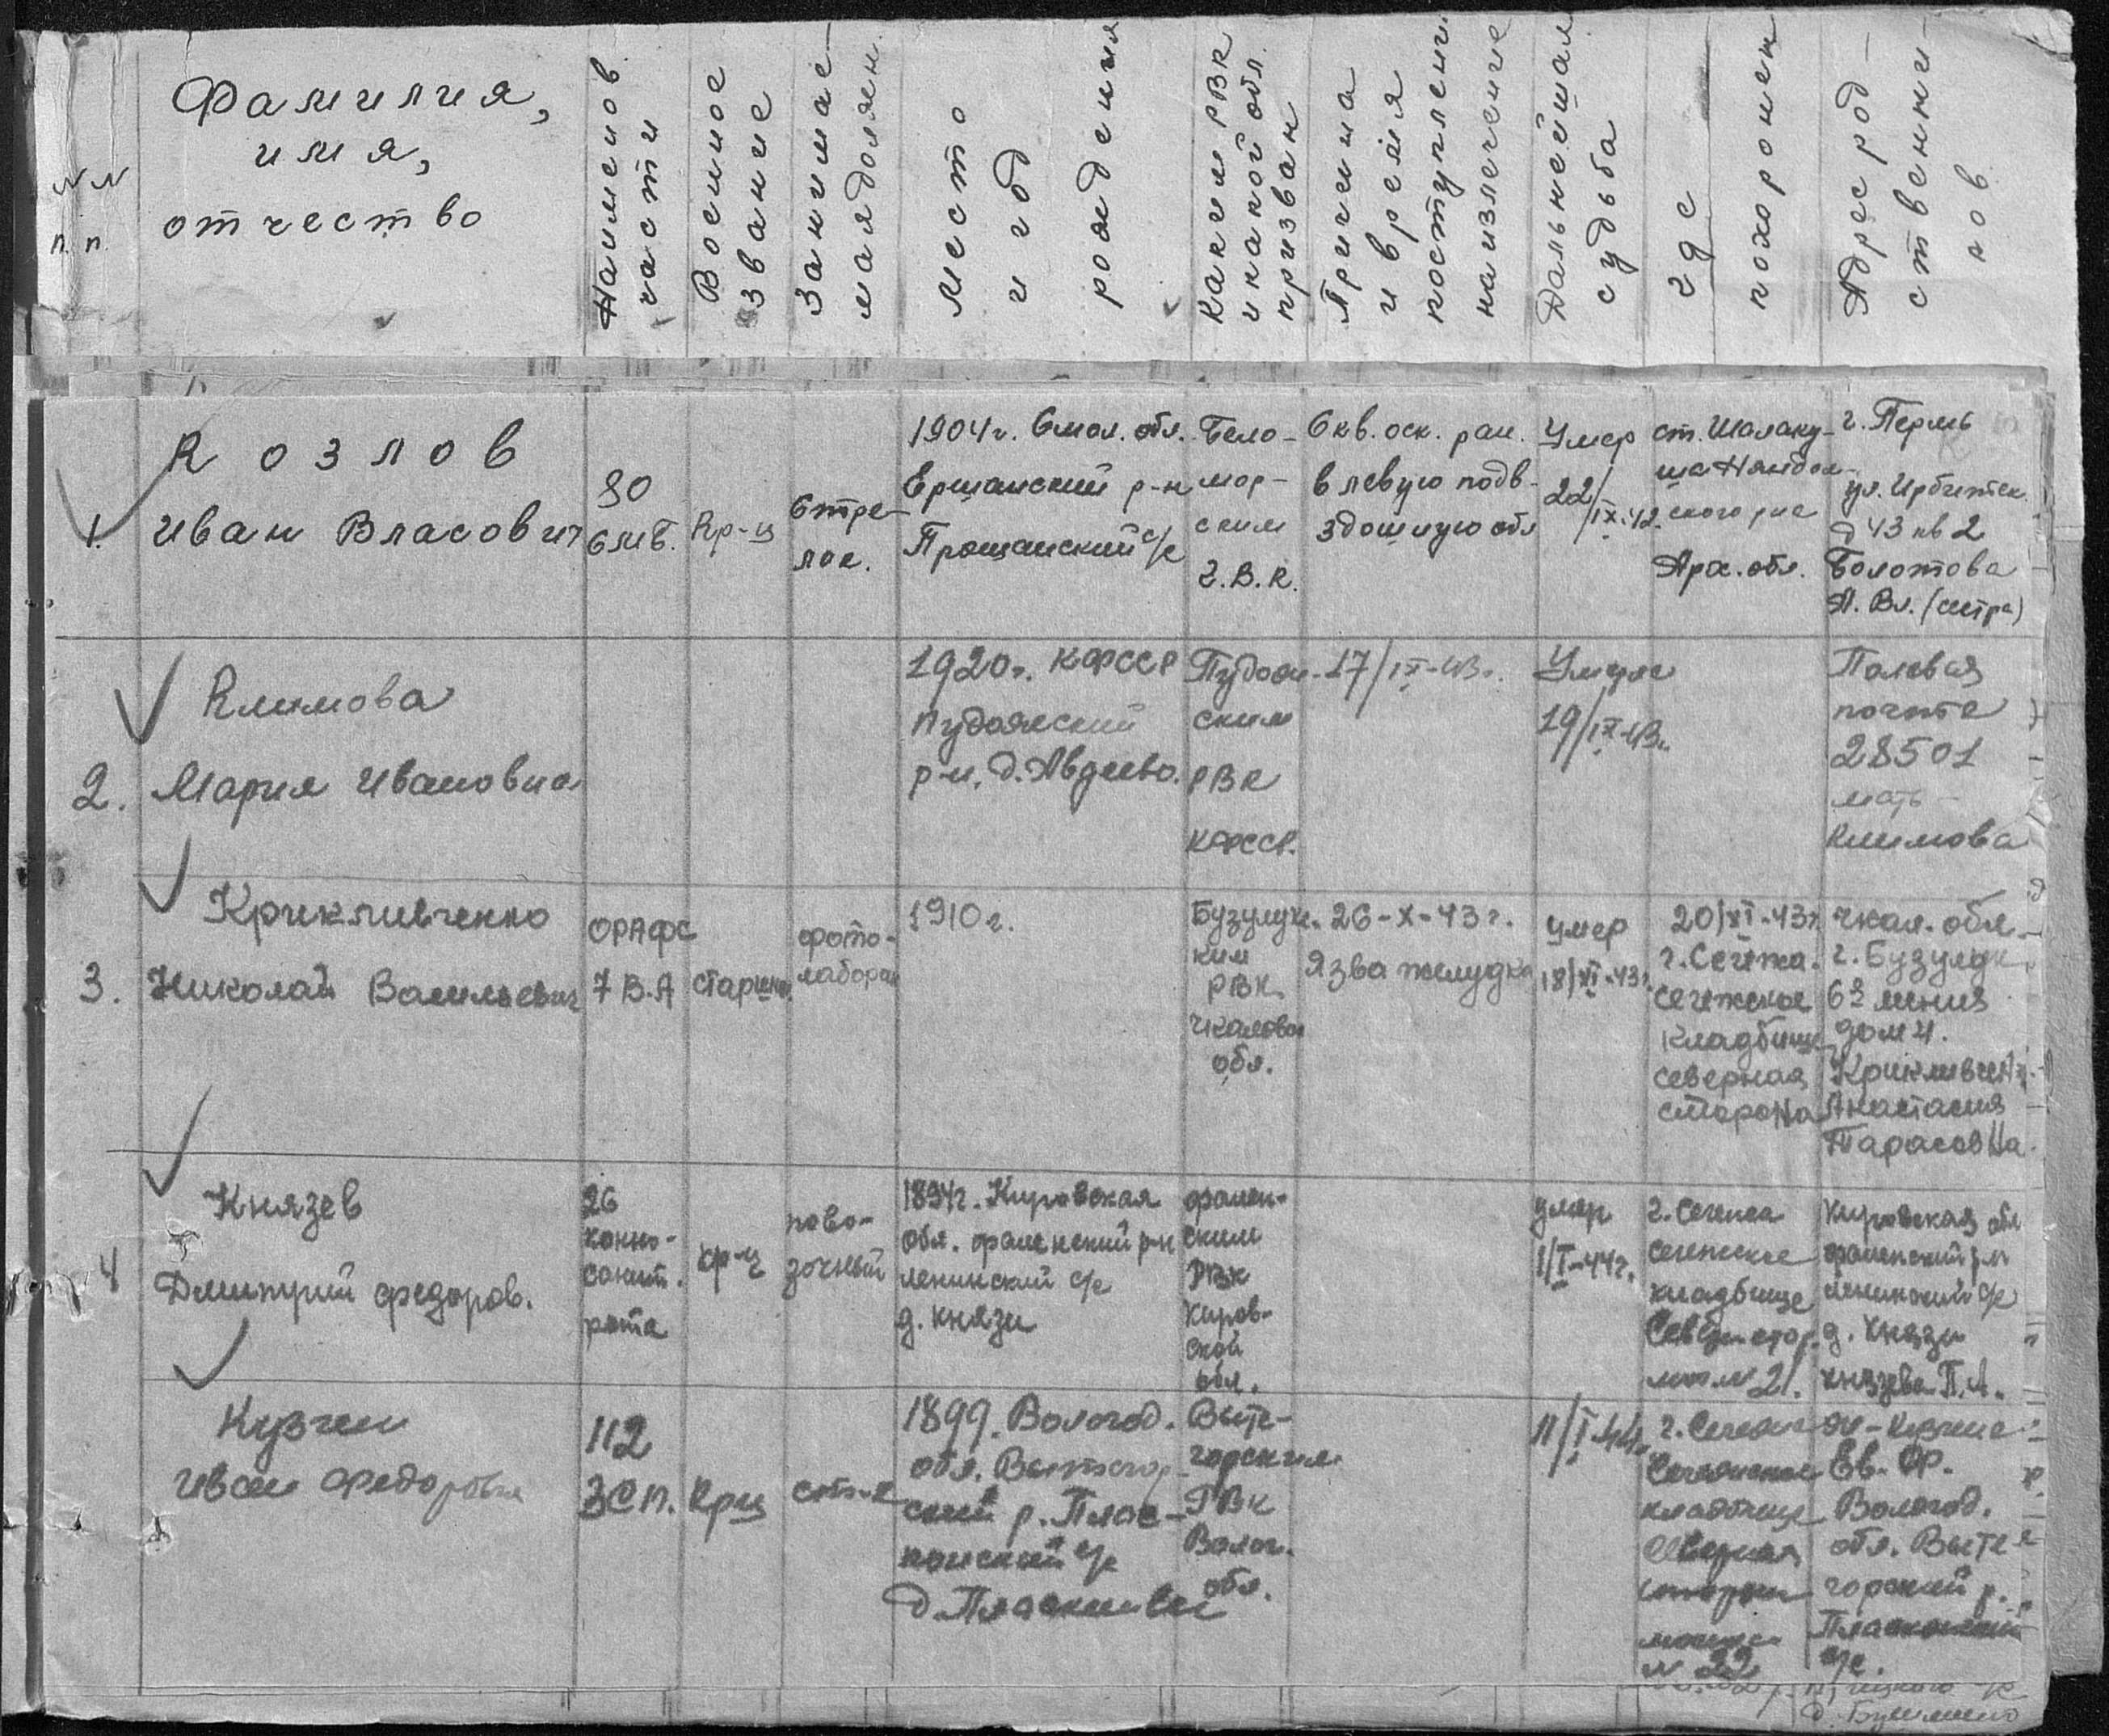 № №
п. п.
Фамилия,
имя,
отчество
Наименов
части
Военное
звание
Занимае-
мая должн.
Место
и год
рождения
Каким РВК
и какой обл.
призван
Причина
и время
поступлени
на излечение
Дальнейшая
судьба
где
похоронен
Адрес род-
ственни-
ков
1.
Козлов
Иван Власович
80
ОМБ.
Кр-ц
Стре-
лок.
1904г. Смол. обл.
Ершанский р-н
Прощанский с/с
Бело-
мор-
ским
Г.В.К.
Скв. оск. ран.
в левую подв-
здошную обл
Умер
22/IX-42.
ст. Шалаку-
ша Няндом-
ского р-на
Арх. обл.
г. Пермь
ул. Ирбитск.
д 43 кв 2
Болотова
А. Вл. (сестра)
2.
Климова
Мария Ивановна
1920г. КФССР
Пудожский
р-н, д. Авдеево.
Пудож-
ским
РВК
КФССР.
17/IX-43г.
Умерла
19/IX-43г.
Полевая
почта
28501
мать
Климова
3.
Крикливченко
Николай Васильевич
ОРАФС
7 В.А
старшина
фото-
лаборан
1910г.
Бузулук-
ким
РВК
Чкаловск
обл.
26-X-43г.
Язва желудка
умер
18/XI-43г.
20/XI-43г.
г. Сегежа.
Сегежское
кладбище
северная
сторона
Чкал. обл.
г. Бузулук
6я линия
дом 4.
Крикливченко
Анастасия
Тарасовна.
4
Князев
Дмитрий Федоров.
26
конно-
санит.
рота
кр-ц
пово-
зочный
1894г. Кировская
обл. Фаленский р-н
Ленинский с/с
д. Князи
Фален-
ским
РВК
Киров-
ской
обл.
умер
1/I-44г.
г. Сегежа
Сегежское
кладбище
Северн стор.
мог № 21.
Кировская обл
Фаленский р-н
Ленинский с/с
д. Князи
Князева П.А.
Кузчен
Иван Федорович
112
ЗСП.
Крц
1899. Вологод.
обл. Вытегор-
ский р. Плас-
с/с
Выте-
горским
РВК
Волог.
обл.
11/I-44г.
г. Сегежа
Сегежское
кладбище
Северная
сторона
могила
№ 22
Ев. Ф.
Вологод.
обл. Выте-
горский р.
с/с.